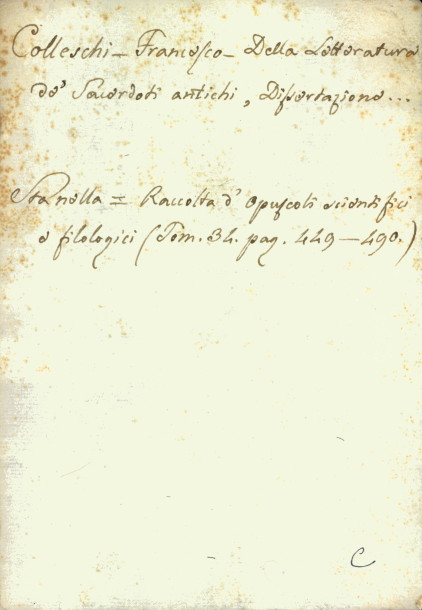 Colleschi – Francesco – Della Letteratura
de' Sacerdoti antichi, Dissertazione...
Sta nella = Raccolta d' Opuscoli scientifici
e filologici (Tom. 34. pag. 449 – 490.)
C